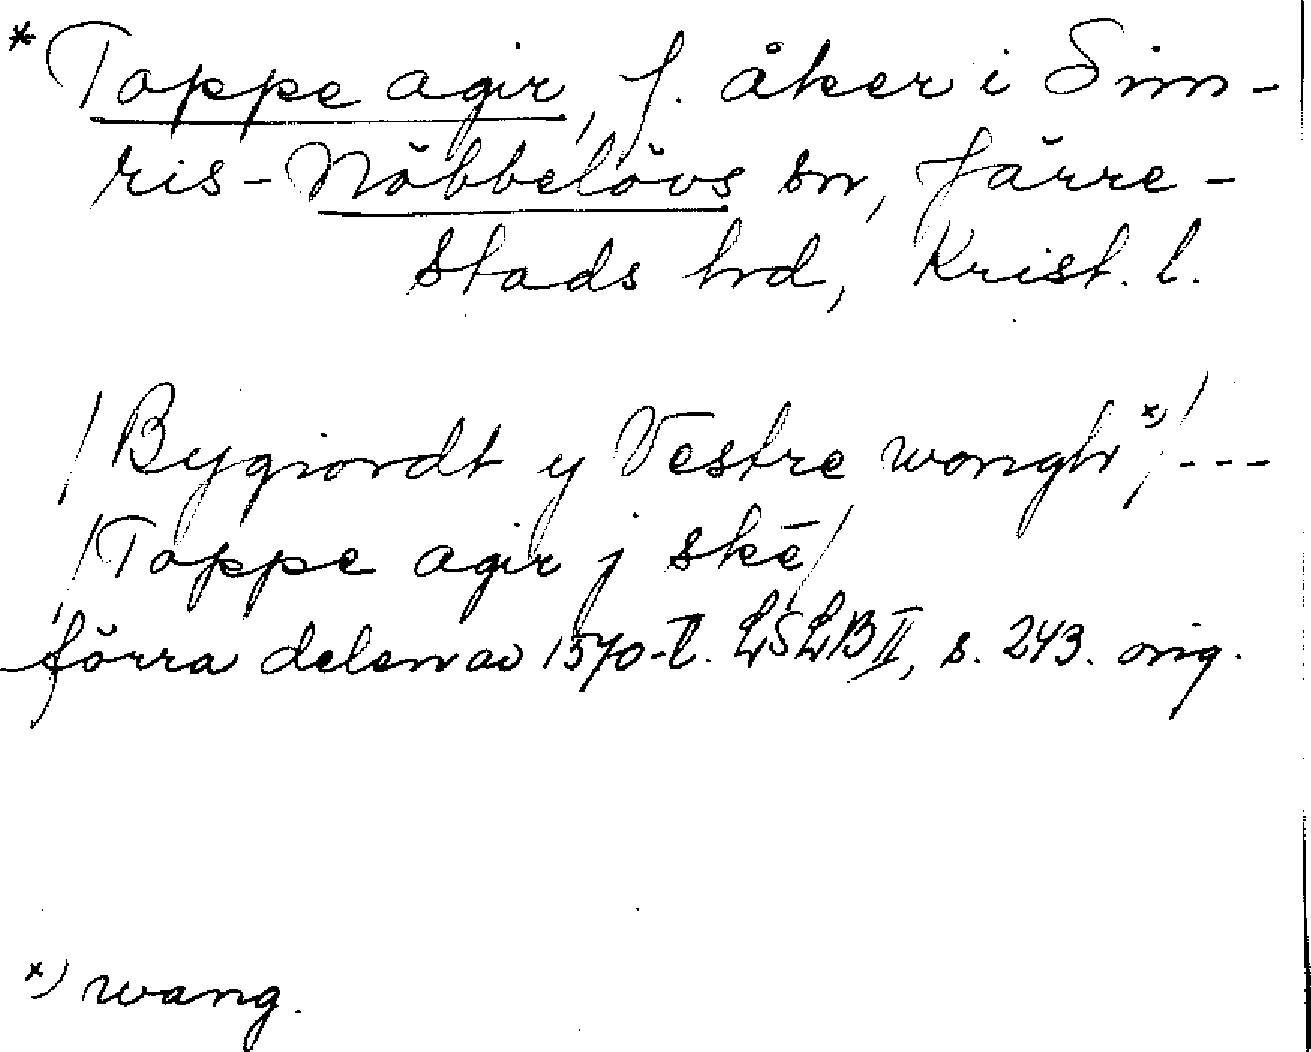 * Toppe agir, f. åker i Sim-
ris-Nöbbelövs sn, Järre-
stads hrd, Krist. l.
/Bygiordt y Vestre wongh x)/ ---
/Toppe agir j skē/
förra delen av 1570-t. LSLB II, s. 243. orig.
x) wang.